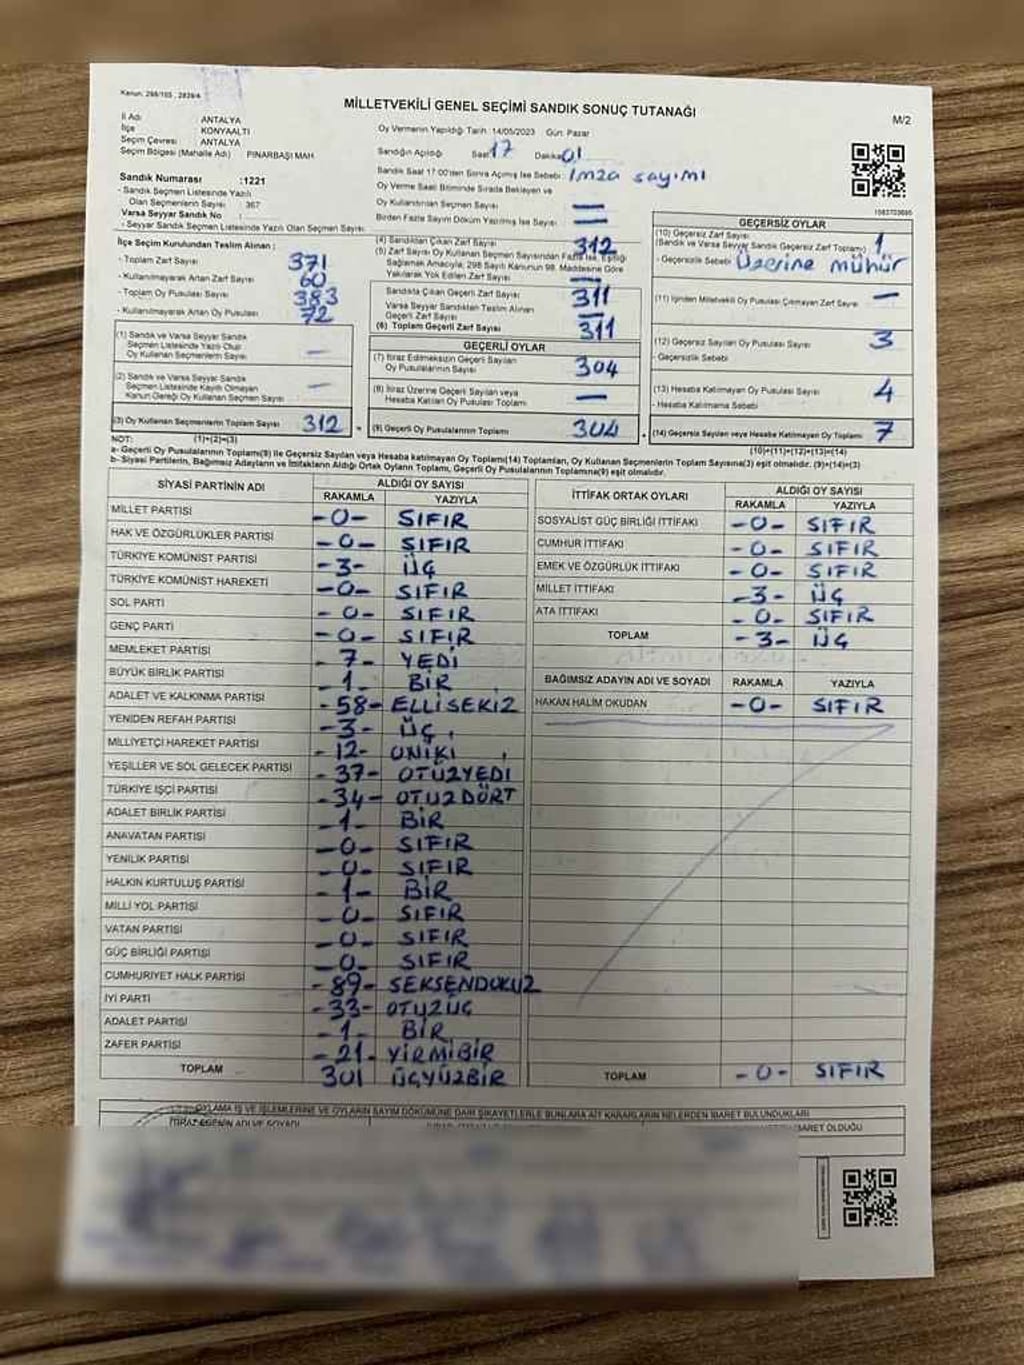 Kanun: 298/105 , 2839/4
MİLLETVEKİLİ GENEL SEÇİMİ SANDIK SONUÇ TUTANAĞI
M/2
İl Adı : ANTALYA
İlçe : KONYAALTI
Seçim Çevresi : ANTALYA
Seçim Bölgesi (Mahalle Adı) : PINARBAŞI MAH.
Oy Vermenin Yapıldığı Tarih: 14/05/2023 Gün: Pazar
Sandığın Açıldığı Saat: 17 Dakika: 01
Sandık Saat 17:00'den Sonra Açılmış İse Sebebi : imza sayımı
Oy Verme Saati Bitiminde Sırada Bekleyen ve
Oy Kullandırılan Seçmen Sayısı : —
Birden Fazla Sayım Döküm Yapılmış İse Sayısı : —
Sandık Numarası :1221
- Sandık Seçmen Listesinde Yazılı
Olan Seçmenlerin Sayısı : 367
Varsa Seyyar Sandık No :
- Seyyar Sandık Seçmen Listesinde Yazılı Olan Seçmen Sayısı:
İlçe Seçim Kurulundan Teslim Alınan ;
- Toplam Zarf Sayısı : 371
- Kullanılmayarak Artan Zarf Sayısı : 60
- Toplam Oy Pusulası Sayısı : 383
- Kullanılmayarak Artan Oy Pusulası : 72
(1) Sandık ve Varsa Seyyar Sandık
Seçmen Listesinde Yazılı Olup
Oy Kullanan Seçmenlerin Sayısı : —
(2) Sandık ve Varsa Seyyar Sandık
Seçmen Listesinde Kayıtlı Olmayan
Kanun Gereği Oy Kullanan Seçmen Sayısı : —
(3) Oy Kullanan Seçmenlerin Toplam Sayısı : 312
(4) Sandıktan Çıkan Zarf Sayısı : 312
(5) Zarf Sayısı Oy Kullanan Seçmen Sayısından Fazla İse, Eşitliği
Sağlamak Amacıyla, 298 Sayılı Kanunun 98. Maddesine Göre
Yakılarak Yok Edilen Zarf Sayısı : —
Sandıkta Çıkan Geçerli Zarf Sayısı : 311
Varsa Seyyar Sandıktan Teslim Alınan
Geçerli Zarf Sayısı : —
(6) Toplam Geçerli Zarf Sayısı : 311
GEÇERLİ OYLAR
(7) İtiraz Edilmeksizin Geçerli Sayılan
Oy Pusulalarının Sayısı : 304
(8) İtiraz Üzerine Geçerli Sayılan veya
Hesaba Katılan Oy Pusulası Toplamı : —
(9) Geçerli Oy Pusulalarının Toplamı : 304
1583703695
GEÇERSİZ OYLAR
(10) Geçersiz Zarf Sayısı : 1
(Sandık ve Varsa Seyyar Sandık Geçersiz Zarf Toplamı)
- Geçersizlik Sebebi : Üzerine mühür
(11) İçinden Milletvekili Oy Pusulası Çıkmayan Zarf Sayısı : —
(12) Geçersiz Sayılan Oy Pusulası Sayısı : 3
- Geçersizlik Sebebi :
(13) Hesaba Katılmayan Oy Pusulası Sayısı : 4
- Hesaba Katılmama Sebebi :
(14) Geçersiz Sayılan veya Hesaba Katılmayan Oy Toplamı : 7
NOT: (1)+(2)=(3) (10)+(11)+(12)+(13)=(14)
a- Geçerli Oy Pusulalarının Toplamı(9) ile Geçersiz Sayılan veya Hesaba katılmayan Oy Toplamı(14) Toplamları, Oy Kullanan Seçmenlerin Toplam Sayısına(3) eşit olmalıdır. (9)+(14)=(3)
b- Siyasi Partilerin, Bağımsız Adayların ve İttifakların Aldığı Ortak Oyların Toplamı, Geçerli Oy Pusulalarının Toplamına(9) eşit olmalıdır.
SİYASİ PARTİNİN ADI ALDIĞI OY SAYISI
RAKAMLA YAZIYLA
MİLLET PARTİSİ -0- SIFIR
HAK VE ÖZGÜRLÜKLER PARTİSİ -0- SIFIR
TÜRKİYE KOMÜNİST PARTİSİ -3- ÜÇ
TÜRKİYE KOMÜNİST HAREKETİ -0- SIFIR
SOL PARTİ -0- SIFIR
GENÇ PARTİ -0- SIFIR
MEMLEKET PARTİSİ -7- YEDİ
BÜYÜK BİRLİK PARTİSİ -1- BİR
ADALET VE KALKINMA PARTİSİ -58- ELLİSEKİZ
YENİDEN REFAH PARTİSİ -3- ÜÇ
MİLLİYETÇİ HAREKET PARTİSİ -12- ONİKİ
YEŞİLLER VE SOL GELECEK PARTİSİ -37- OTUZYEDİ
TÜRKİYE İŞÇİ PARTİSİ -34- OTUZDÖRT
ADALET BİRLİK PARTİSİ -1- BİR
ANAVATAN PARTİSİ -0- SIFIR
YENİLİK PARTİSİ -0- SIFIR
HALKIN KURTULUŞ PARTİSİ -1- BİR
MİLLİ YOL PARTİSİ -0- SIFIR
VATAN PARTİSİ -0- SIFIR
GÜÇ BİRLİĞİ PARTİSİ -0- SIFIR
CUMHURİYET HALK PARTİSİ -89- SEKSENDOKUZ
İYİ PARTİ -33- OTUZÜÇ
ADALET PARTİSİ -1- BİR
ZAFER PARTİSİ -21- YİRMİBİR
TOPLAM 301 ÜÇYÜZBİR
İTTİFAK ORTAK OYLARI ALDIĞI OY SAYISI
RAKAMLA YAZIYLA
SOSYALİST GÜÇ BİRLİĞİ İTTİFAKI -0- SIFIR
CUMHUR İTTİFAKI -0- SIFIR
EMEK VE ÖZGÜRLÜK İTTİFAKI -0- SIFIR
MİLLET İTTİFAKI -3- ÜÇ
ATA İTTİFAKI -0- SIFIR
TOPLAM -3- ÜÇ
BAĞIMSIZ ADAYIN ADI VE SOYADI RAKAMLA YAZIYLA
HAKAN HALİM OKUDAN -0- SIFIR
TOPLAM -0- SIFIR
OYLAMA İŞ VE İŞLEMLERİNE VE OYLARIN SAYIM DÖKÜMÜNE DAİR ŞİKAYETLERLE BUNLARA AİT KARARLARIN NELERDEN İBARET BULUNDUKLARI
İTİRAZ EDENİN ADI VE SOYADI
İBARET OLDUĞU